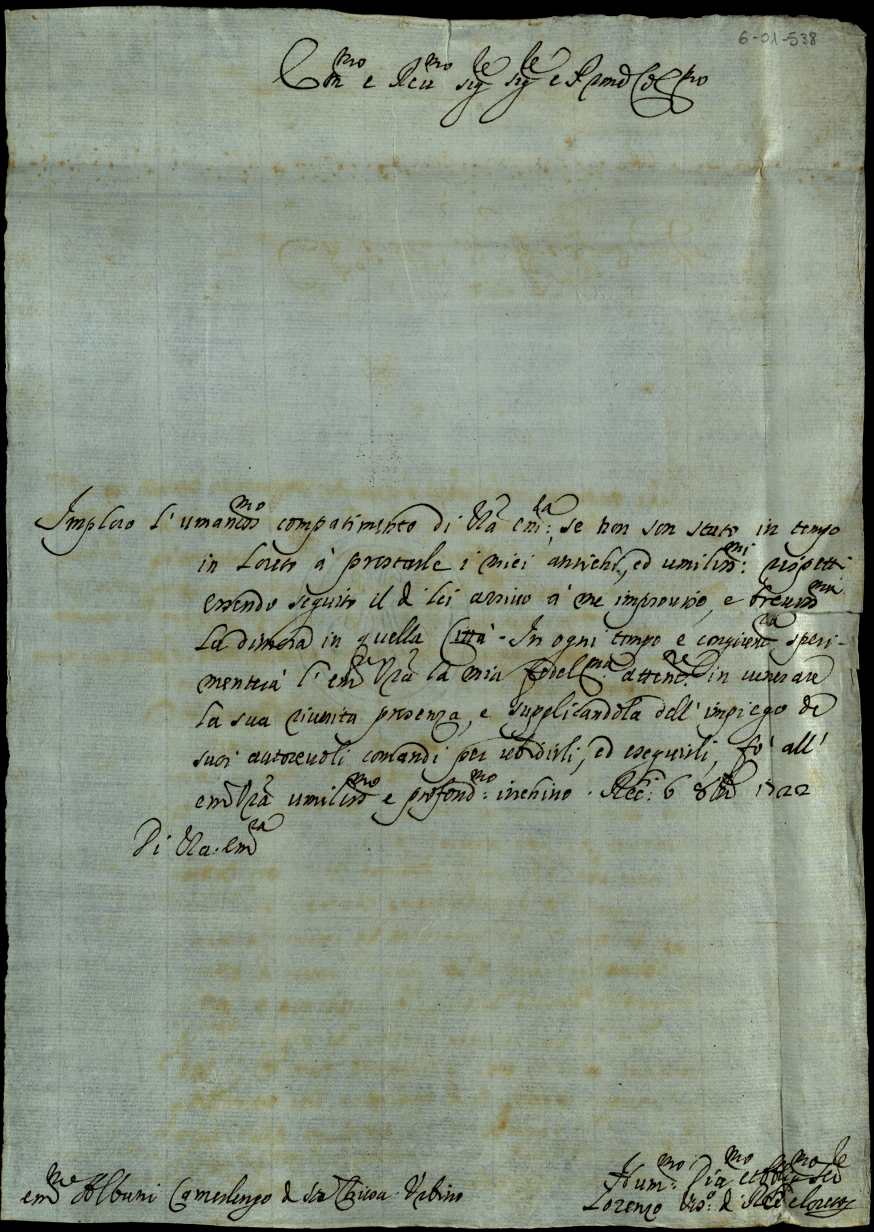 6-01-538
Em.mo e Rev.mo Sig.re Sig.re e P.rone Col.mo
Imploro l'umaniss.mo compatimento di V.ra Em.za, se non son stato in tempo
in Loreto à prestarle i miei antichi, ed umiliss.mi rispetti
essendo seguito il di lei arrivo à me improviso, e breviss.ma
la dimora in quella Città. In ogni tempo e congiont.ra speri-
menterà l'Em.za V.ra la mia fedel.ma attenz.ne in venerare
la sua riverita presenza, e supplicandola dell'impiego de
suoi autorevoli comandi per ubidirli, ed eseguirli, fò all'
Em.za V.ra umiliss.mo e profond.mo inchino. Rec.ti 6 8bre 1722
Di V.ra Em.za
Em.mo Albani Camerlengo di S.ta Chiesa Urbino
Hum.mo Dev.mo et Obblig.mo Ser.re
Lorenzo Vesc.o di Rec.ti e Loreto